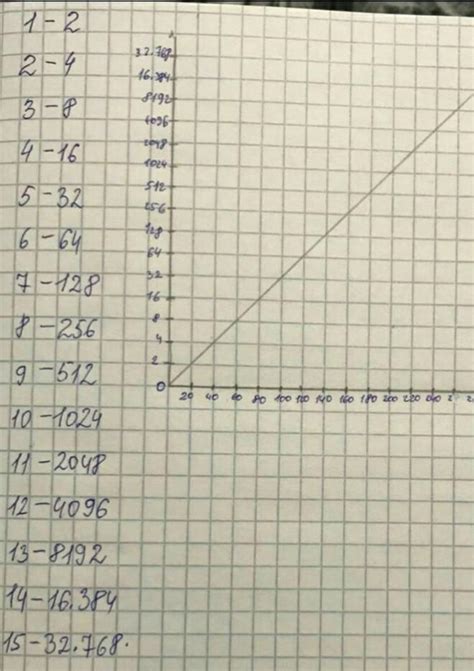 1-2
2-4
3-8
4-16
5-32
6-64
7-128
8-256
9-512
10-1024
11-2048
12-4096
13-8192
14-16.384
15-32.768.
32.768
16.384
8192
4096
2048
1024
512
256
128
64
32
16
8
4
2
0
20 40 60 80 100 120 140 160 180 200 220 240